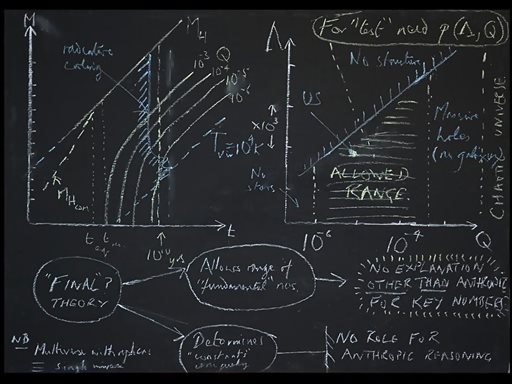 M
M4
radiative
cooling
10-3
Q
10-4
10-5
10-6
Tvir=104K
MHcom
t
teq
1010 yrs
t
For "test" need p(Λ,Q)
Λ
No structure
US
×103
No
stars
ALLOWED
RANGE
Massive
holes
(no galaxies)
CHAOTIC UNIVERSE
10-6
10-4
Q
"FINAL"?
THEORY
Allows range of
"fundamental" nos.
NO EXPLANATION
OTHER THAN ANTHROPIC
FOR KEY NUMBERS
Determines
"constants"
uniquely
NO ROLE FOR
ANTHROPIC REASONING
NB
Multiverse with
single